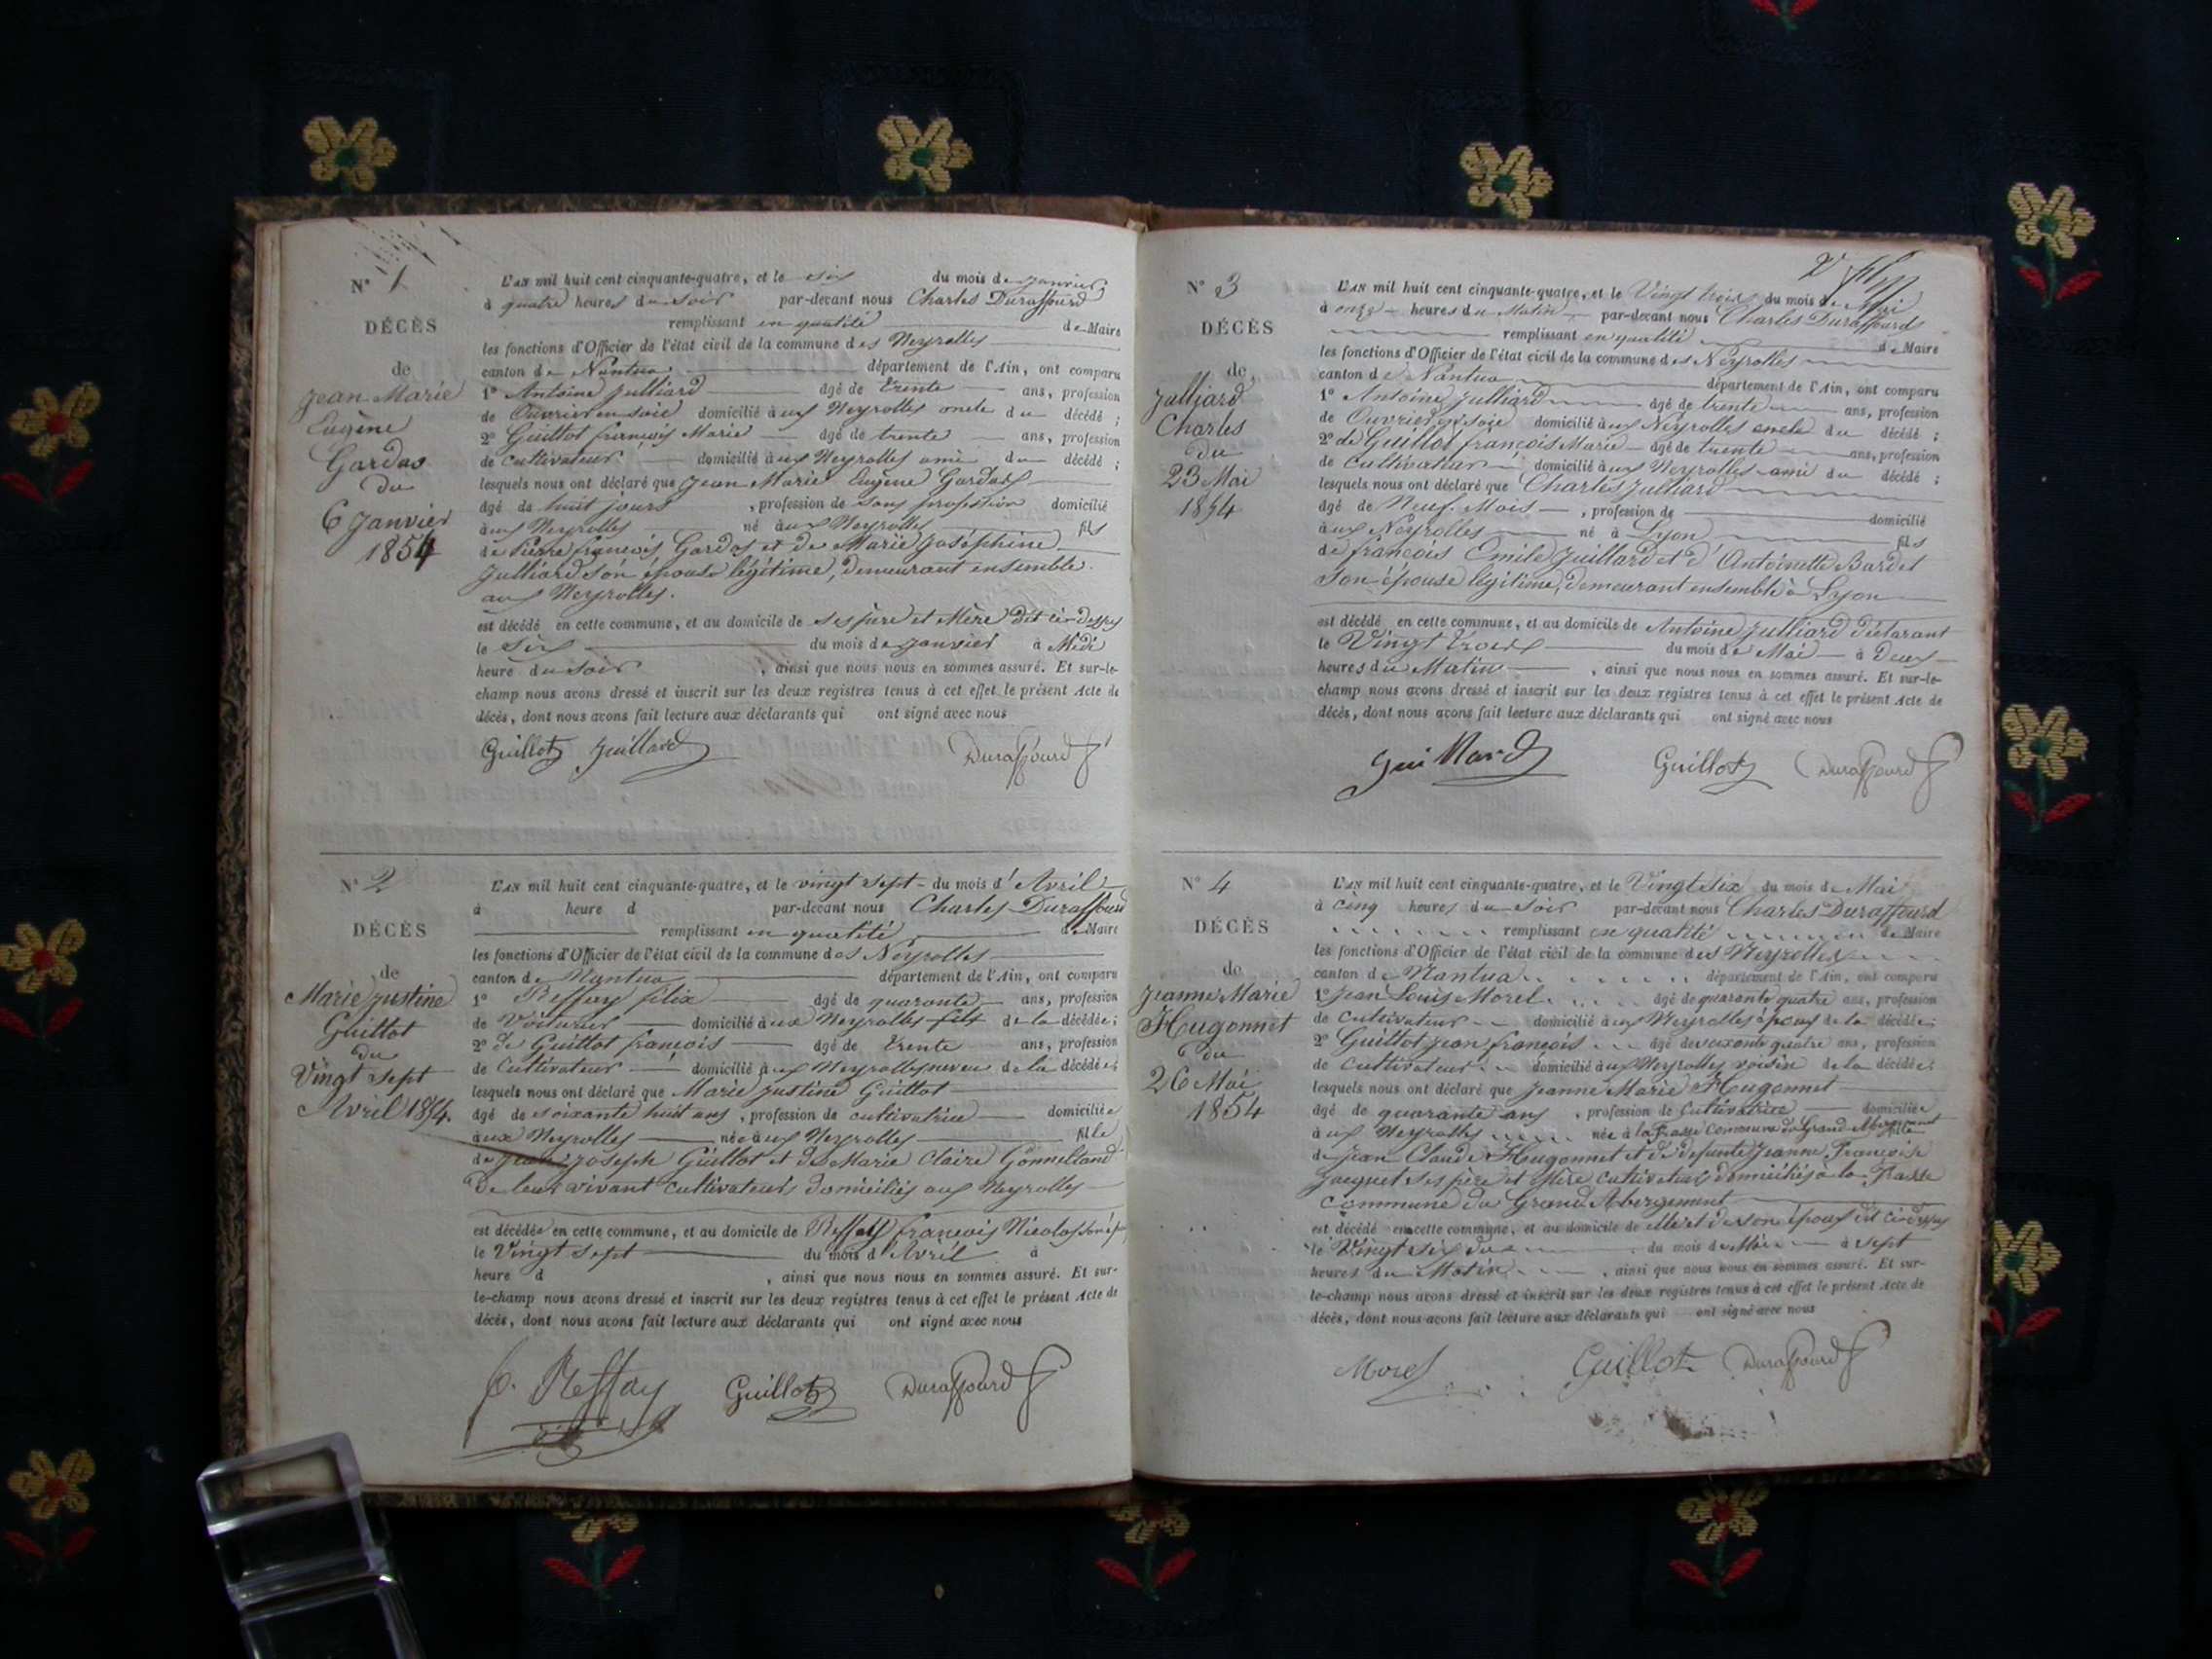 N° 1
DÉCÈS
de
Jean Marie
Eugène
Gardas
du
6 Janvier
1854
L'AN mil huit cent cinquante-quatre, et le six du mois de Janvier
à quatre heures du soir par-devant nous Charles Duraffourd
remplissant en qualité de Maire
les fonctions d'Officier de l'état civil de la commune des Neyrolles
canton de Nantua département de l'Ain, ont comparu
1° Antoine Julliard âgé de trente ans, profession
de Ouvrier en soie domicilié aux Neyrolles oncle du décédé ;
2° Guillot françois Marie âgé de trente ans, profession
de cultivateur domicilié aux Neyrolles ami du décédé ;
lesquels nous ont déclaré que Jean Marie Eugène Gardas
âgé de huit jours , profession de sans profession domicilié
aux Neyrolles né aux Neyrolles fils
de Pierre françois Gardas et de Marie Joséphine
Julliard son épouse légitime, demeurant ensemble
aux Neyrolles.
est décédé en cette commune, et au domicile de ses père et Mère dit ci-dessus
le six du mois de Janvier à Midi
heure du soir , ainsi que nous nous en sommes assuré. Et sur-le-
champ nous avons dressé et inscrit sur les deux registres tenus à cet effet le présent Acte de
décès, dont nous avons fait lecture aux déclarants qui ont signé avec nous
Guillot Juillard Duraffourd
N° 2
DÉCÈS
de
Marie Justine
Guillot
du
Vingt sept
Avril 1854.
L'AN mil huit cent cinquante-quatre, et le vingt sept du mois d'Avril
à heure d par-devant nous Charles Duraffourd
remplissant en qualité de Maire
les fonctions d'Officier de l'état civil de la commune des Neyrolles
canton de Nantua département de l'Ain, ont comparu
1° Reffay félix âgé de quarante ans, profession
de Voiturier domicilié aux Neyrolles fils de la décédée ;
2° de Guillot françois âgé de trente ans, profession
de Cultivateur domicilié aux Neyrolles neveu de la décédée ;
lesquels nous ont déclaré que Marie Justine Guillot
âgé de soixante huit ans , profession de cultivatrice domiciliée
aux Neyrolles née aux Neyrolles fille
de Jean Joseph Guillot et de Marie Claire Gonnelland
De leur vivant cultivateurs domiciliés aux Neyrolles
est décédée en cette commune, et au domicile de Reffay françois Nicolas son
le Vingt sept du mois d'Avril à
heure d , ainsi que nous nous en sommes assuré. Et sur-
le-champ nous avons dressé et inscrit sur les deux registres tenus à cet effet le présent Acte de
décès, dont nous avons fait lecture aux déclarants qui ont signé avec nous
f. Reffay Guillot Duraffourd
N° 3
DÉCÈS
de
Julliard
Charles
du
23 Mai
1854
L'AN mil huit cent cinquante-quatre, et le Vingt trois du mois de Mai
à onze heures du Matin par-devant nous Charles Duraffourd
remplissant en qualité de Maire
les fonctions d'Officier de l'état civil de la commune des Neyrolles
canton de Nantua département de l'Ain, ont comparu
1° Antoine Julliard âgé de trente ans, profession
de Ouvrier en soie domicilié aux Neyrolles oncle du décédé ;
2° de Guillot françois Marie âgé de trente ans, profession
de Cultivateur domicilié aux Neyrolles ami du décédé ;
lesquels nous ont déclaré que Charles Julliard
âgé de Neuf Mois , profession de domicilié
aux Neyrolles né à Lyon fils
de françois Emile Juillard et d'Antoinette Bardet
son épouse légitime, demeurant ensemble à Lyon
est décédé en cette commune, et au domicile de Antoine Julliard déclarant
le Vingt trois du mois de Mai à Deux
heures du Matin , ainsi que nous nous en sommes assuré. Et sur-le-
champ nous avons dressé et inscrit sur les deux registres tenus à cet effet le présent Acte de
décès, dont nous avons fait lecture aux déclarants qui ont signé avec nous
Juillard Guillot Duraffourd
N° 4
DÉCÈS
de
Jeanne Marie
Hugonnet
du
26 Mai
1854
L'AN mil huit cent cinquante-quatre, et le Vingt six du mois de Mai
à cinq heures du soir par-devant nous Charles Duraffourd
remplissant en qualité de Maire
les fonctions d'Officier de l'état civil de la commune des Neyrolles
canton de Nantua département de l'Ain, ont comparu
1° Jean Louis Morel âgé de quarante quatre ans, profession
de cultivateur domicilié aux Neyrolles époux de la décédée ;
2° Guillot Jean françois âgé de soixante quatre ans, profession
de Cultivateur domicilié aux Neyrolles voisin de la décédée ;
lesquels nous ont déclaré que Jeanne Marie Hugonnet
âgé de quarante ans , profession de Cultivatrice domiciliée
aux Neyrolles née à la Commune du Grand Abergement fille
de Jean Claude Hugonnet et de défunte Jeanne Françoise
Jacquet ses père et Mère cultivateurs domiciliés à la
Commune du Grand Abergement
est décédé en cette commune, et au domicile de elle et de son époux dit ci-dessus
le Vingt six du mois de Mai à sept
heures du Matin , ainsi que nous nous en sommes assuré. Et sur-
le-champ nous avons dressé et inscrit sur les deux registres tenus à cet effet le présent Acte de
décès, dont nous avons fait lecture aux déclarants qui ont signé avec nous
Morel Guillot Duraffourd